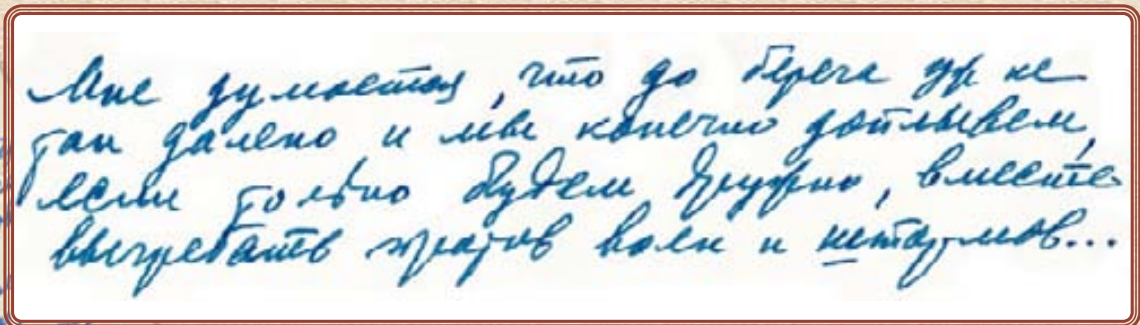 Мне думается, что до берега уж не
так далеко и мы конечно доплывем,
если только будем дружно, вместе
выгребать против волн и штормов...